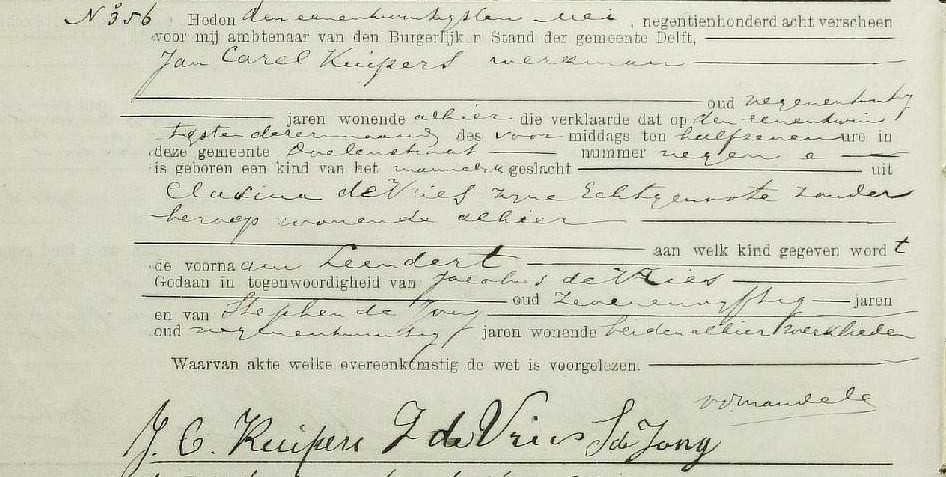 Nº 356 Heden den eenentwintigsten mei, negentienhonderd acht verscheen
voor mij ambtenaar van den Burgerlijken Stand der gemeente Delft,
Jan Carel Kuipers werkman
oud negenentwintig
jaren wonende alhier die verklaarde dat op den eenentwin
tigsten dezer maand des voor middags ten halfzeven ure in
deze gemeente Doelenstraat nummer negen a
is geboren een kind van het mannelijk geslacht uit
Clasina de Vries zijne Echtgenoote zonder
beroep wonende alhier
aan welk kind gegeven wordt
de voornaam Leendert
Gedaan in tegenwoordigheid van Jacobus de Vries
oud zevenenvyftig jaren
en van Stephen de Jong
oud negenentwintig jaren wonende beiden alhier werklieden
Waarvan akte welke overeenkomstig de wet is voorgelezen.
J. C. Kuipers J de Vries S de Jong